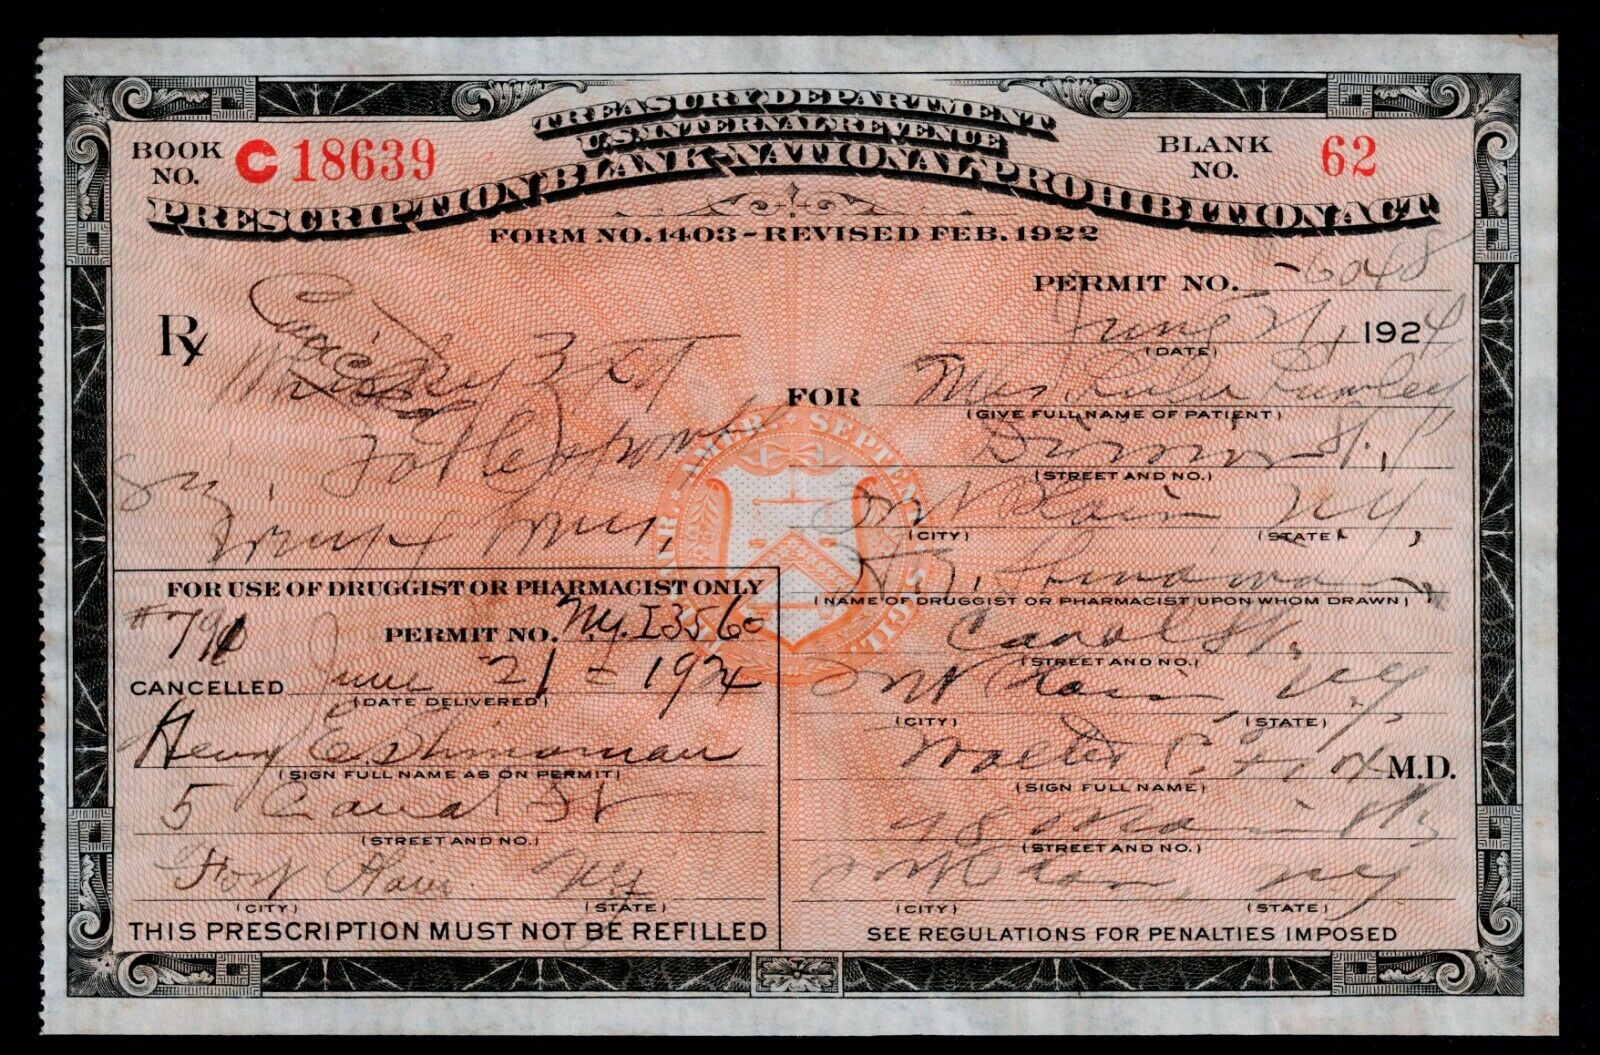 TREASURY DEPARTMENT
U.S. INTERNAL REVENUE
PRESCRIPTION BLANK-NATIONAL PROHIBITION ACT
FORM NO. 1403-REVISED FEB. 1922
BOOK NO. C18639
BLANK NO. 62
PERMIT NO. -6048
June 21, 1924
(DATE)
Rx
FOR Mrs Lulu
(GIVE FULL NAME OF PATIENT)
St.
(STREET AND NO.)
Ft Plain N.Y.
(CITY) (STATE)
(NAME OF DRUGGIST OR PHARMACIST UPON WHOM DRAWN)
Canal St.
(STREET AND NO.)
Ft Plain, N.Y.
(CITY) (STATE)
Walter C. M.D.
(SIGN FULL NAME)
48 Main St,
(STREET AND NO.)
Ft Plain, N.Y.
(CITY) (STATE)
SEE REGULATIONS FOR PENALTIES IMPOSED
FOR USE OF DRUGGIST OR PHARMACIST ONLY
PERMIT NO. N.Y. I 3560
CANCELLED June 21-1924
(DATE DELIVERED)
Henry E.
(SIGN FULL NAME AS ON PERMIT)
5 Canal St
(STREET AND NO.)
Fort Plain N.Y.
(CITY) (STATE)
THIS PRESCRIPTION MUST NOT BE REFILLED